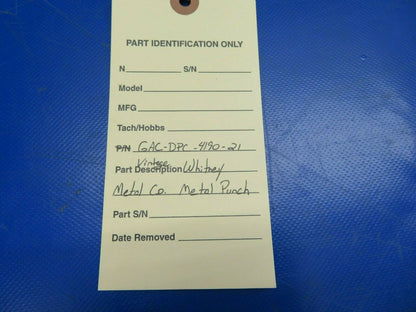 PART IDENTIFICATION ONLY
N S/N
Model
MFG
Tach/Hobbs
P/N GAC-DPC-4190-21
Vintage
Part Description Whitney
Metal Co. Metal Punch
Part S/N
Date Removed